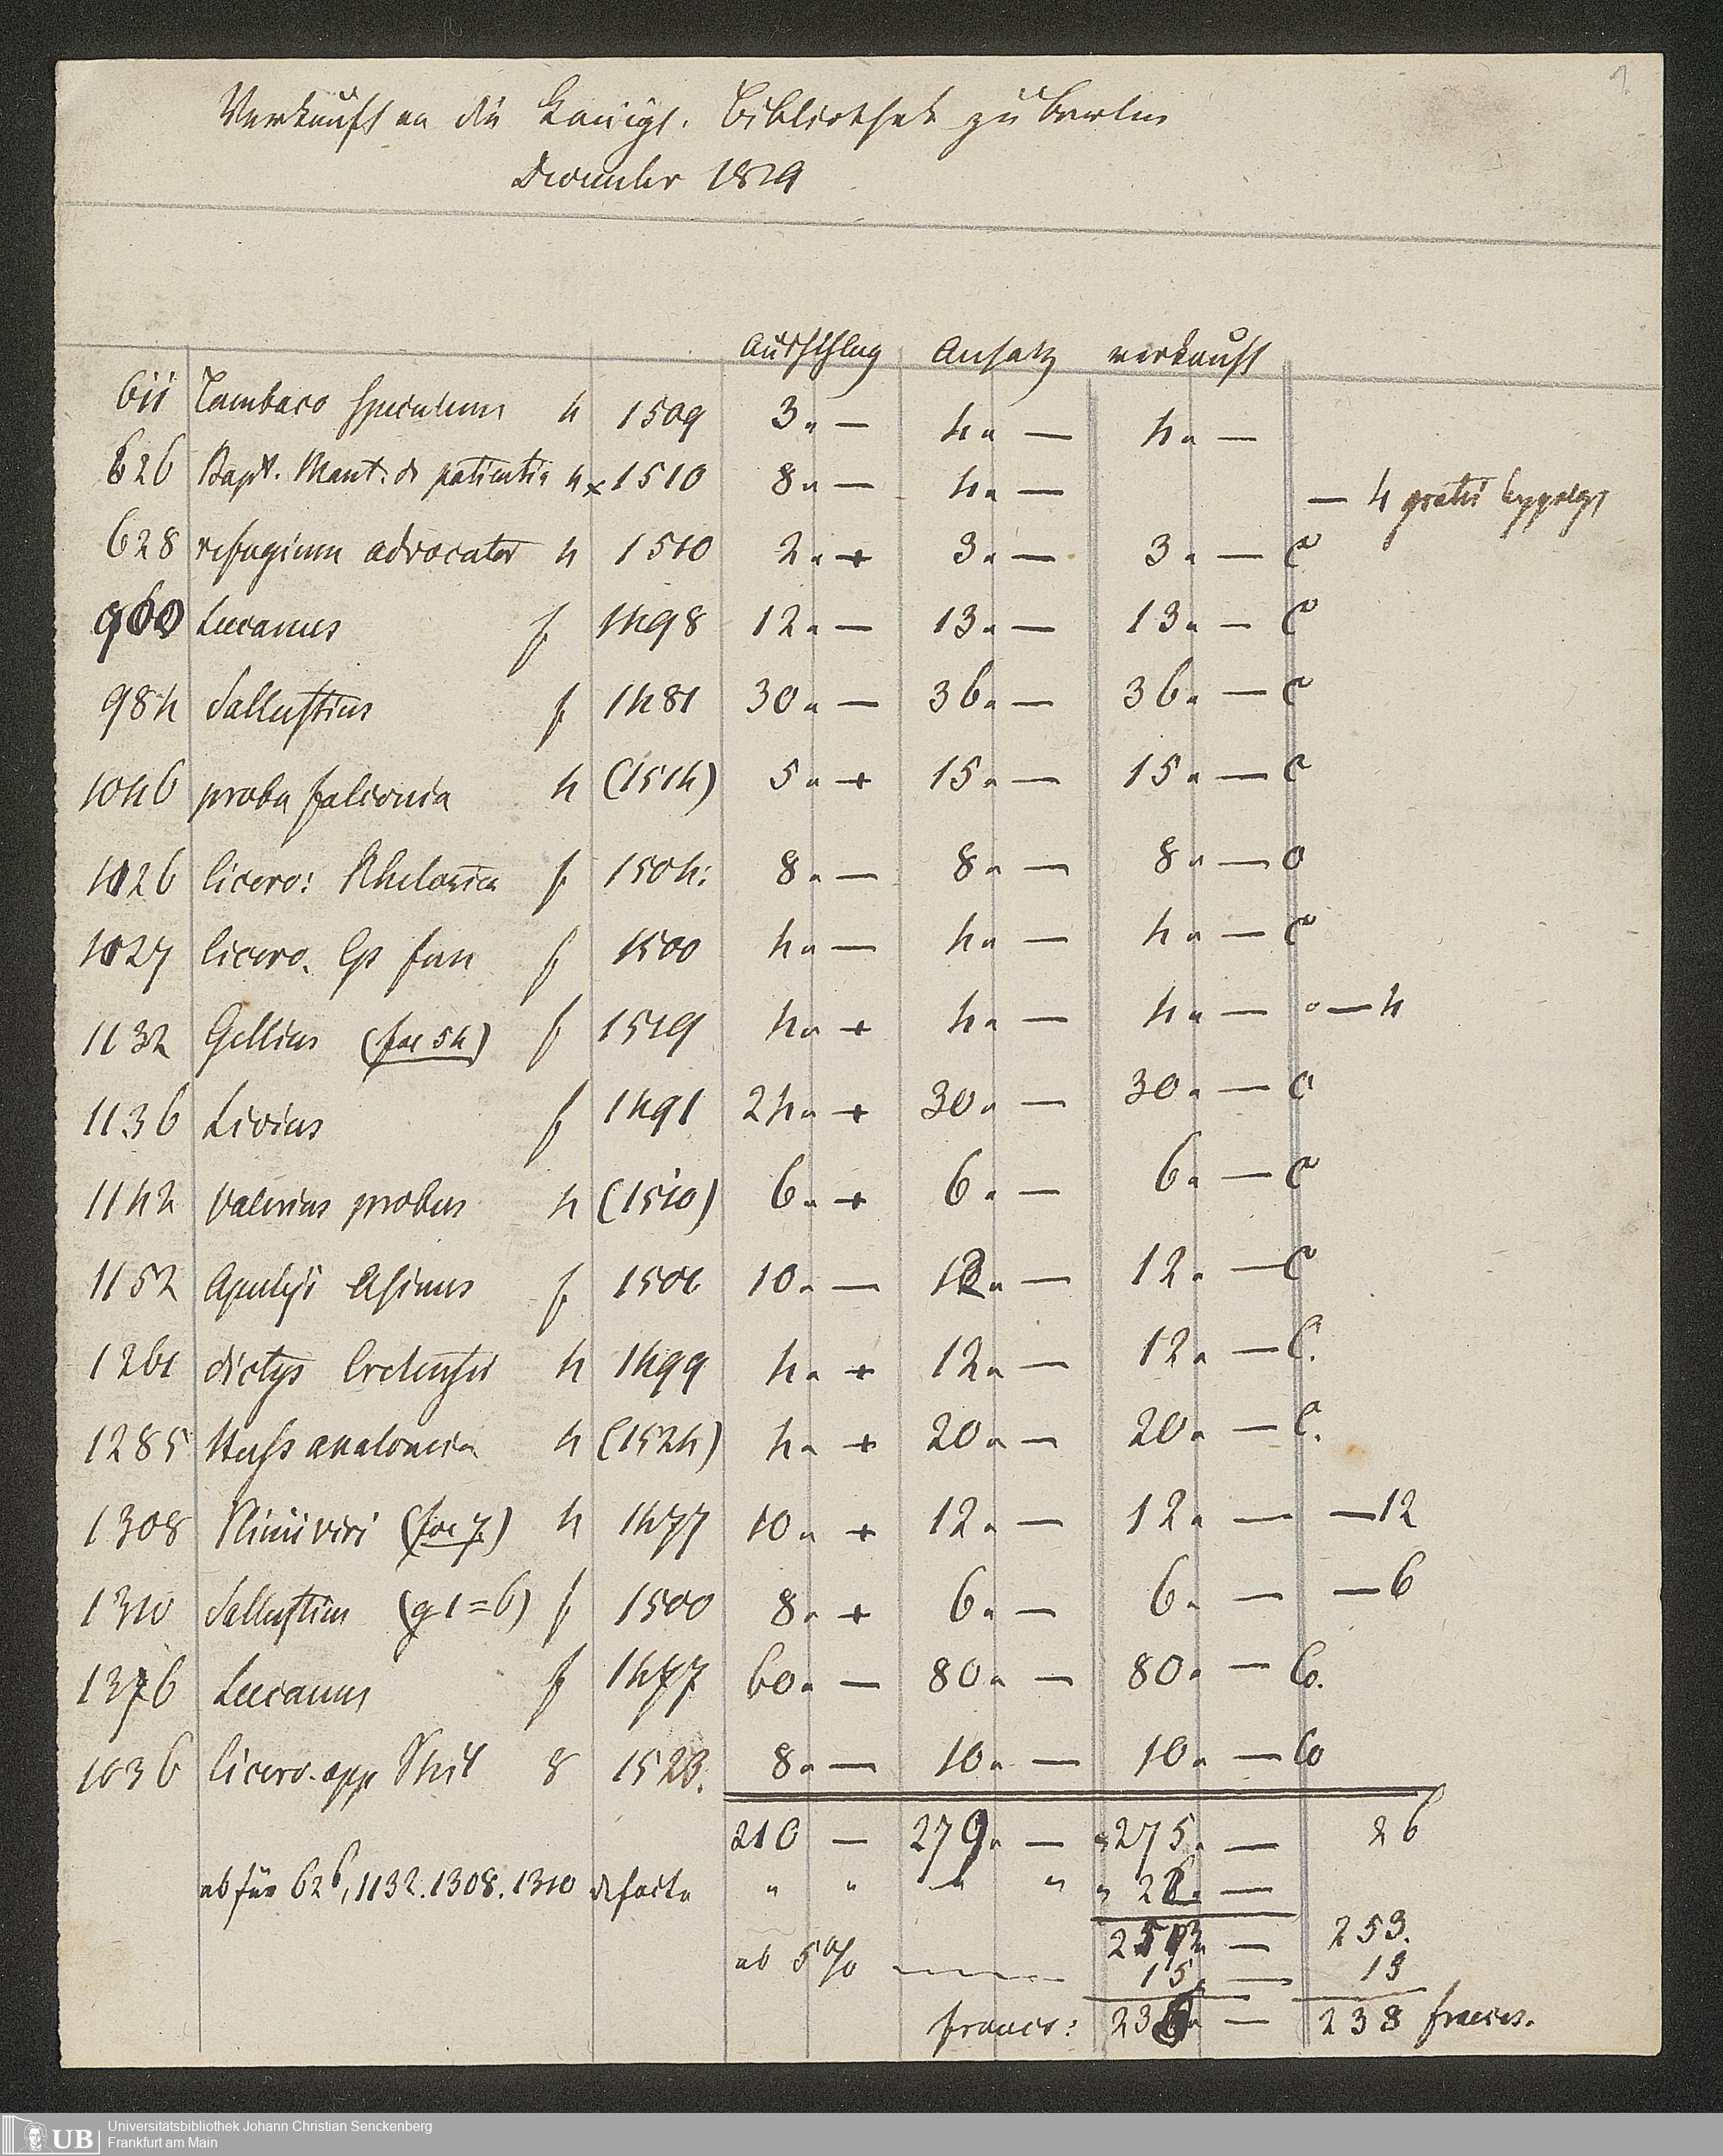 Verkauft an die Königl. Bibliothek zu Berlin
December 1829
Ausschlag Ansatz verkauft
611 Tambaco Speculum 4 1509 3 „ — 4 „ — 4 „ —
626 Bapt. Mant. de patientia 4 x 1510 8 „ — 4 „ — — 4 gratis
628 refugium advocator 4 1510 2 „ + 3 „ — 3 „ — C
960 Lucanus f 1498 12 „ — 13 „ — 13 „ — C
984 Sallustius f 1481 30 „ — 36 „ — 36 „ — C
1046 proba falconia 4 (1514) 5 „ + 15 „ — 15 „ — C
1026 Cicero: Rhetorica f 1504: 8 „ — 8 „ — 8 „ — C
1027 Cicero. Ep fam f 1500 4 „ — 4 „ — 4 „ — C
1132 Gellius (foe 54) f 1519 4 „ + 4 „ — 4 „ — — 4
1136 Livius f 1491 24 „ + 30 „ — 30 „ — C
1142 Valerius probus 4 (1510) 6 „ + 6 „ — 6 „ — C
1152 Apuleji Asinus f 1506 10 „ — 12 „ — 12 „ — C
1261 dictys Cretensis 4 1499 4 „ + 12 „ — 12 „ — C.
1285 anatomia 4 (1524) 4 „ + 20 „ — 20 „ — C.
1308 Plinii viri (foe 7) 4 1477 10 „ + 12 „ — 12 „ — — 12
1310 Sallustius (g 1 = 6) f 1500 8 „ + 6 „ — 6 „ — — 6
1376 Lucanus f 1477 60 „ — 80 „ — 80 „ — Co.
1036 Cicero. opp Phil 8 1523. 8 „ — 10 „ — 10 „ — Co
210 — 279 „ — 275 „ — 26
ab für 626, 1132. 1308. 1310 defecte „ „ „ „ „ —
— 253.
ab 5% 15 „ — 13
francs: 238 „ — 238 francs.
UB Universitätsbibliothek Johann Christian Senckenberg
Frankfurt am Main